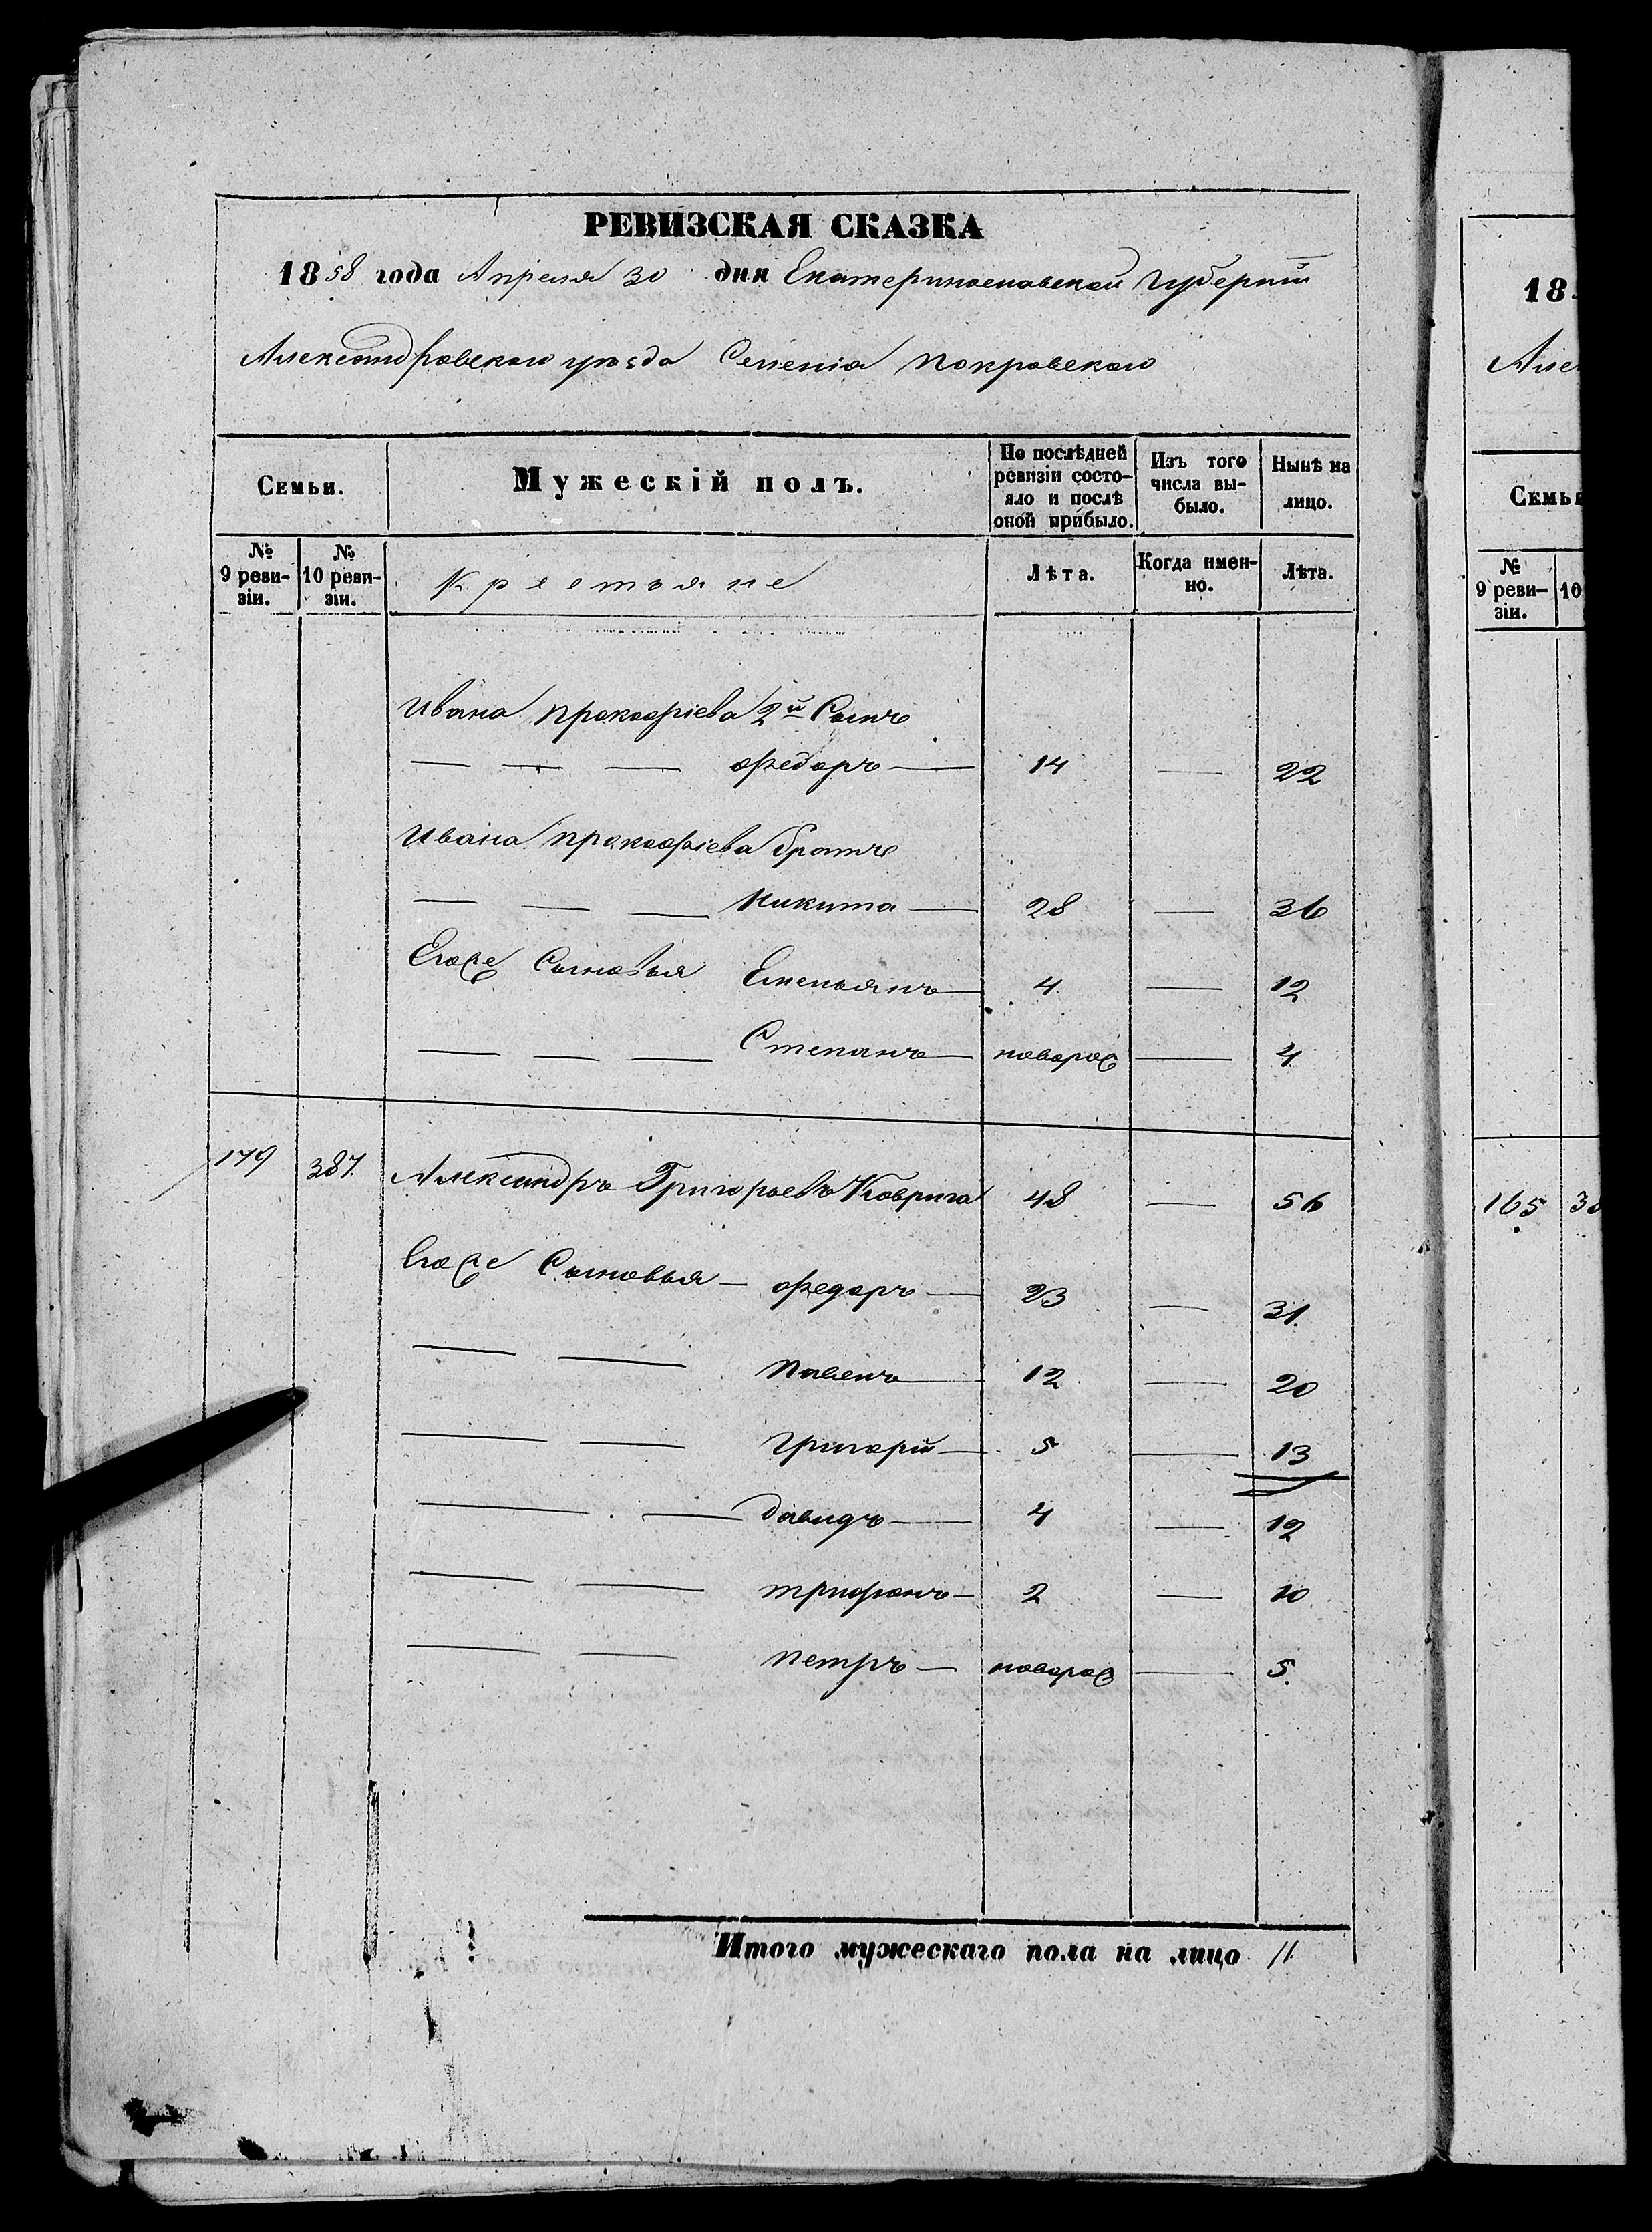 РЕВИЗСКАЯ СКАЗКА
1858 года Апреля 30 дня Екатеринославской Губерніи
Александровского уѣзда Селенія Покровского
Семьи.
Мужескій полъ.
По послѣдней ревизіи состояло и послѣ оной прибыло.
Изъ того числа выбыло.
Нынѣ на лицо.
№ 9 ревизіи.
№ 10 ревизіи.
Крестьяне
Лѣта.
Когда именно.
Лѣта.
Ивана Прокофіева 2й Сынъ
— — — Федоръ — 14 — 22
Ивана Прокофіева братъ
— — — Никита — 28 — 36
Егоже Сыновья Емельянъ — 4 — 12
— — — Степанъ — новорож — 4
179 387 Александръ Григорьевъ Коврига 48 — 56
Егоже Сыновья — Федоръ — 23 — 31.
— — Павелъ — 12 — 20
— — Григорій — 5 — 13
— — Давидъ — 4 — 12
— — Трифонъ — 2 — 10
— — Петръ — новорож — 5.
Итого мужескаго пола на лицо 11
18
Але
Семьи
№ 9 ревизіи.
10
165 38